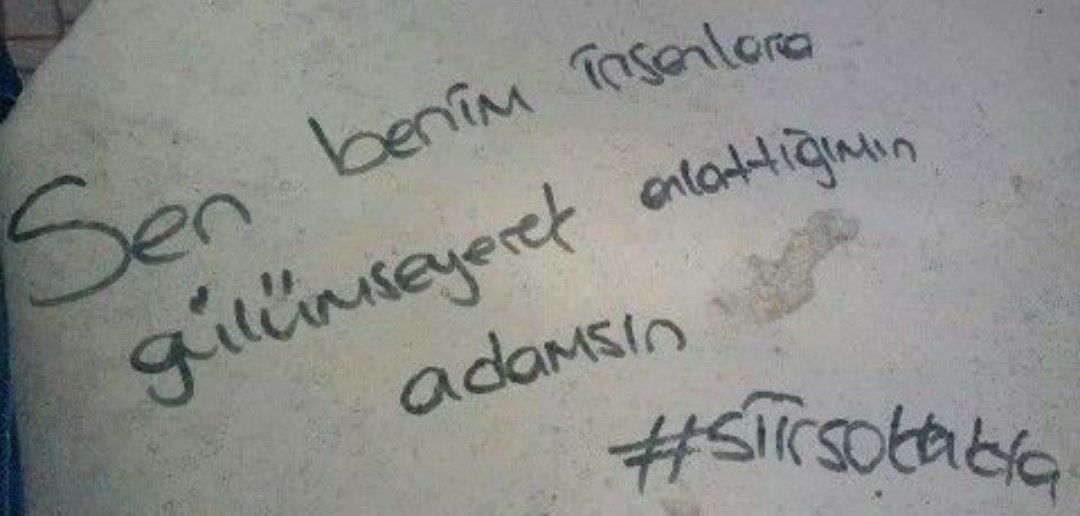 Sen benim insanlara
gülümseyerek anlattığımın
adamsın
#siirsokakta